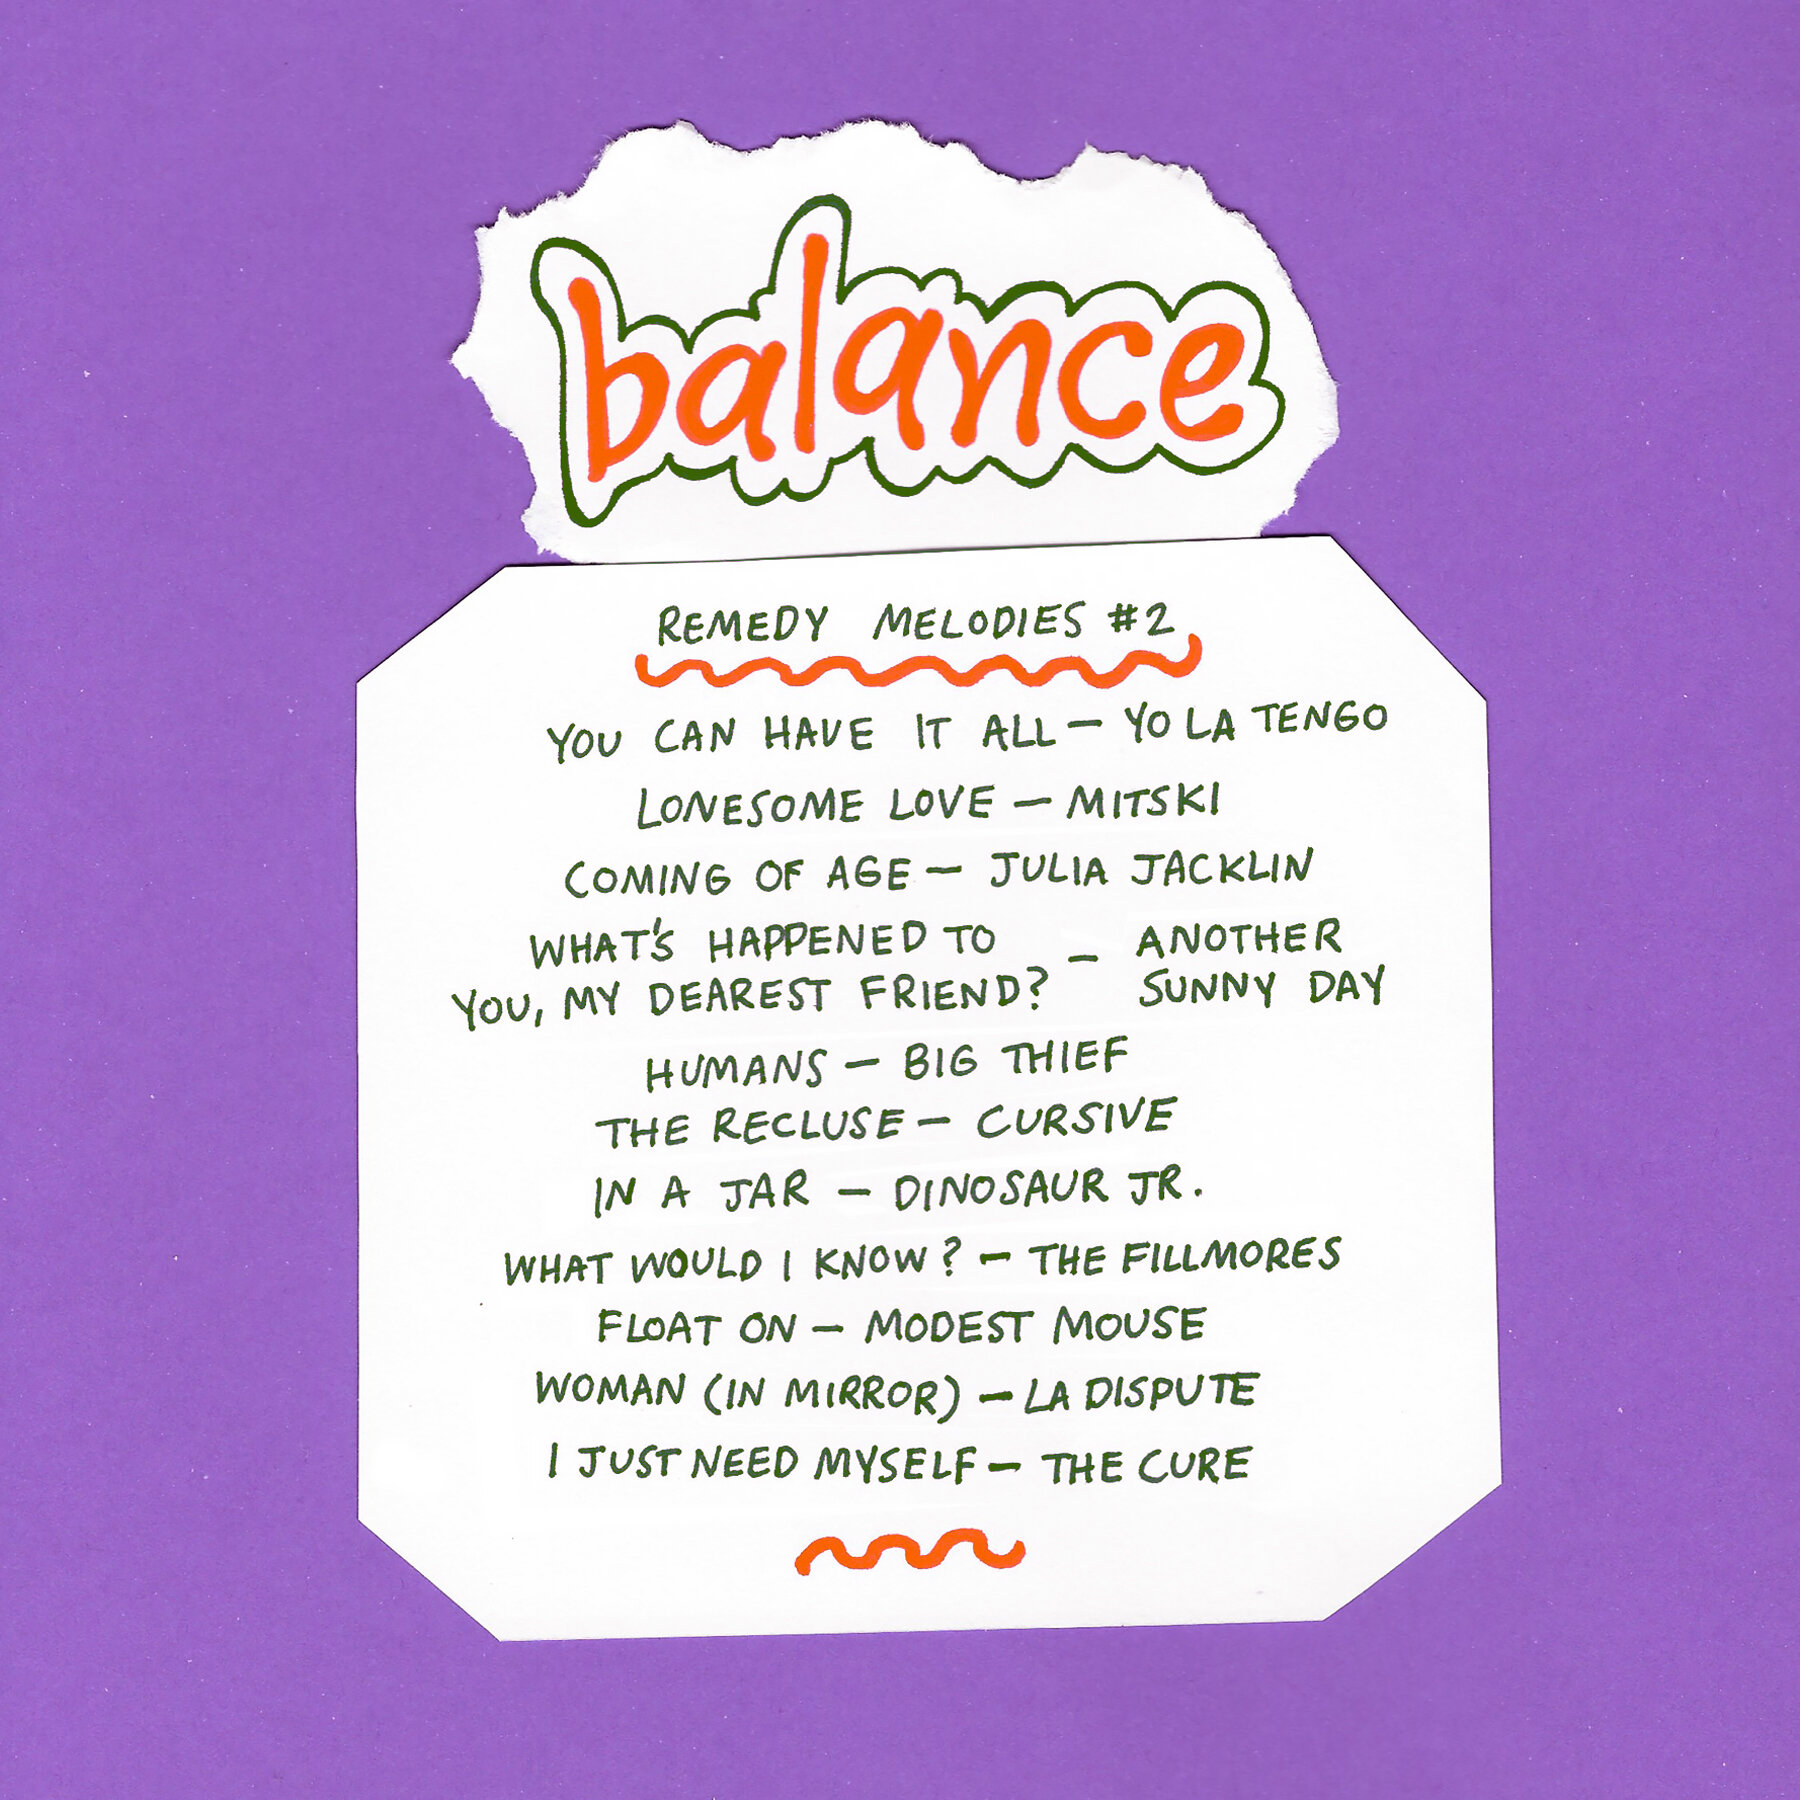 balance
REMEDY MELODIES #2
YOU CAN HAVE IT ALL — YO LA TENGO
LONESOME LOVE — MITSKI
COMING OF AGE — JULIA JACKLIN
WHAT'S HAPPENED TO
YOU, MY DEAREST FRIEND? — ANOTHER
SUNNY DAY
HUMANS — BIG THIEF
THE RECLUSE — CURSIVE
IN A JAR — DINOSAUR JR.
WHAT WOULD I KNOW? — THE FILLMORES
FLOAT ON — MODEST MOUSE
WOMAN (IN MIRROR) — LA DISPUTE
I JUST NEED MYSELF — THE CURE